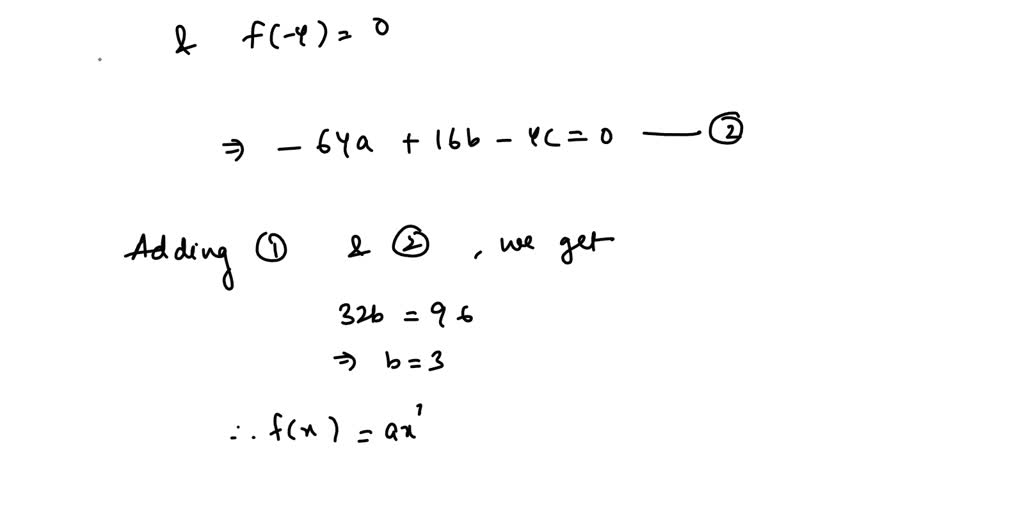 & f(-4) = 0
⇒ - 64a + 16b - 4c = 0 —— ②
Adding ① & ②, we get
32b = 96
⇒ b = 3
∴ f(x) = ax'